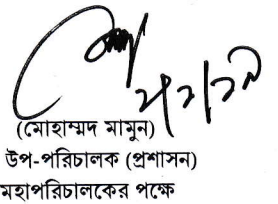 ২/১/১৯
(মোহাম্মদ মামুন)
উপ-পরিচালক (প্রশাসন)
মহাপরিচালকের পক্ষে